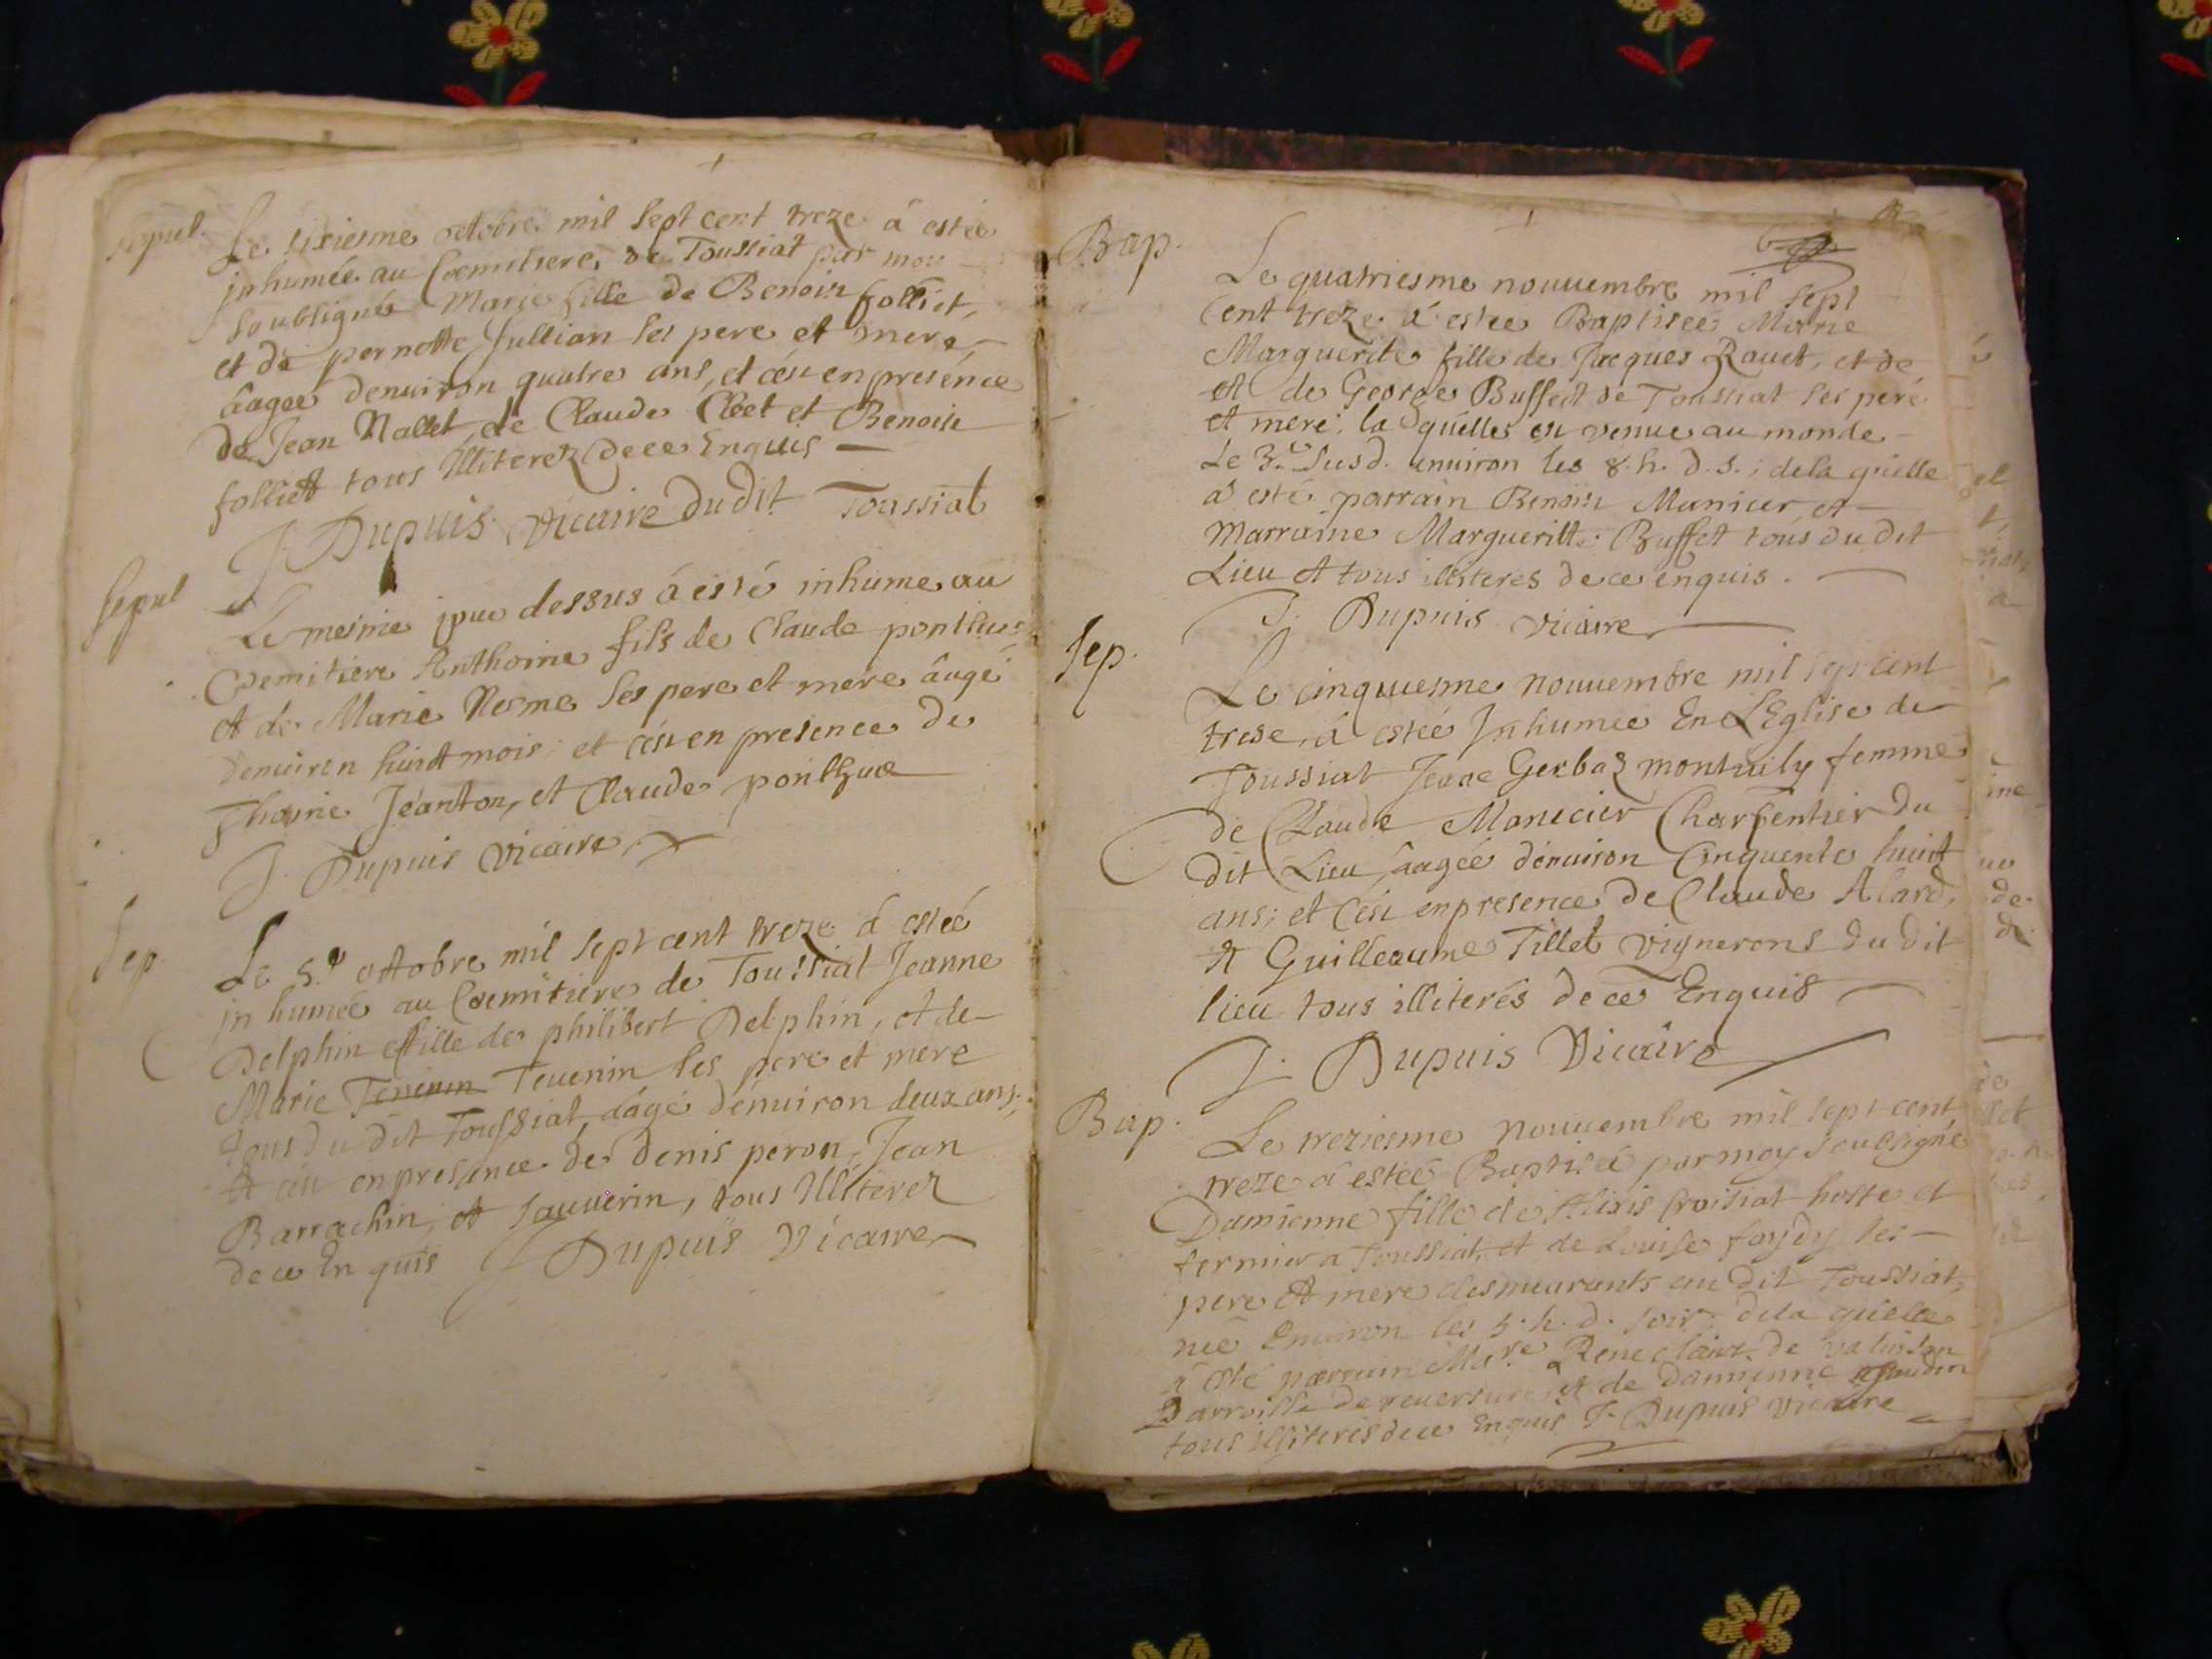 sepul.
Le sixiesme octobre mil sept cent treze á estée
inhumée au Coemitiere de Toussiat par moy
soubsigné Marie fille de Benoist folliet,
et de pernette Jullian ses pere et mere,
âagee denuiron quatre ans, et cest en presence
de Jean Nallet, de Claude Cleet et Benoist
folliet tous illiterez de ce Enquis
J. Dupuis vicaire du dit Toussiat
sepul
Le mesme jour dessus á esté inhume au
Coemitiere Anthoine fils de Claude ponthus
et de Marie Nesme ses pere et mere âagé
denuiron huict mois; et cest en presence de
Thoine Jeanton, et Claude ponthus
J. Dupuis vicaire
sep
Le 5.e octobre mil sept cent treze á estée
jn humée au Coemitiere de Toussiat Jeanne
Delphin fille de philibert Delphin, et de
Marie Teuenin ses pere et mere
tous du dit Toussiat, aagé denuiron deux ans;
et cest en presance de denis peron, Jean
Barrachin, et sauverin, tous illiterez
de ce En quis J Dupuis Vicaire
Bap.
Le quatriesme nouuembre mil sept
Cent treze á estee Baptisée Marie
Marguerite fille de Jacques Rauet, et de
et de George Buffect de Toussiat ses peré
et mere; la quelle est venue au monde
Le 3.e susd. enuiron les 8. h. d. s.; dela quelle
a esté parrain Benoist Manicier, et
marraine Margueritte Buffet tous du dit
Lieu et tous illiteres de ce enquis.
J. Dupuis vicaire
sep.
Le cinquiesme nouuembre mil sept cent
trese, á estée Jnhumee En L'Eglise de
Toussiat Jeane Gerbaz montuily femme
de Claude Manicier Charpentier du
dit Lieu, âagée denuiron Cinquente huict
ans; et Cest en presence de Claude Alard,
et Guilleaume Tillet vignerons du dit
lieu tous illiterés de ce Enquis
J. Dupuis Vicaire
Bap.
Le treziesme nouuembre mil sept cent
treze á estée Baptisée par moy soubsigné
Damienne fille de Alixis Croisiat hoste et
fermier a Toussiat, et de Louise faydy ses
pere et mere desmeurants au dit Toussiat,
neé Enuiron les 5. h. d. soir. dela quelle
á esté parrain Ma.re Rene claire de
parroisse de reuersure et de Damienne
tous illiterés de ce Enquis J. Dupuis vicaire